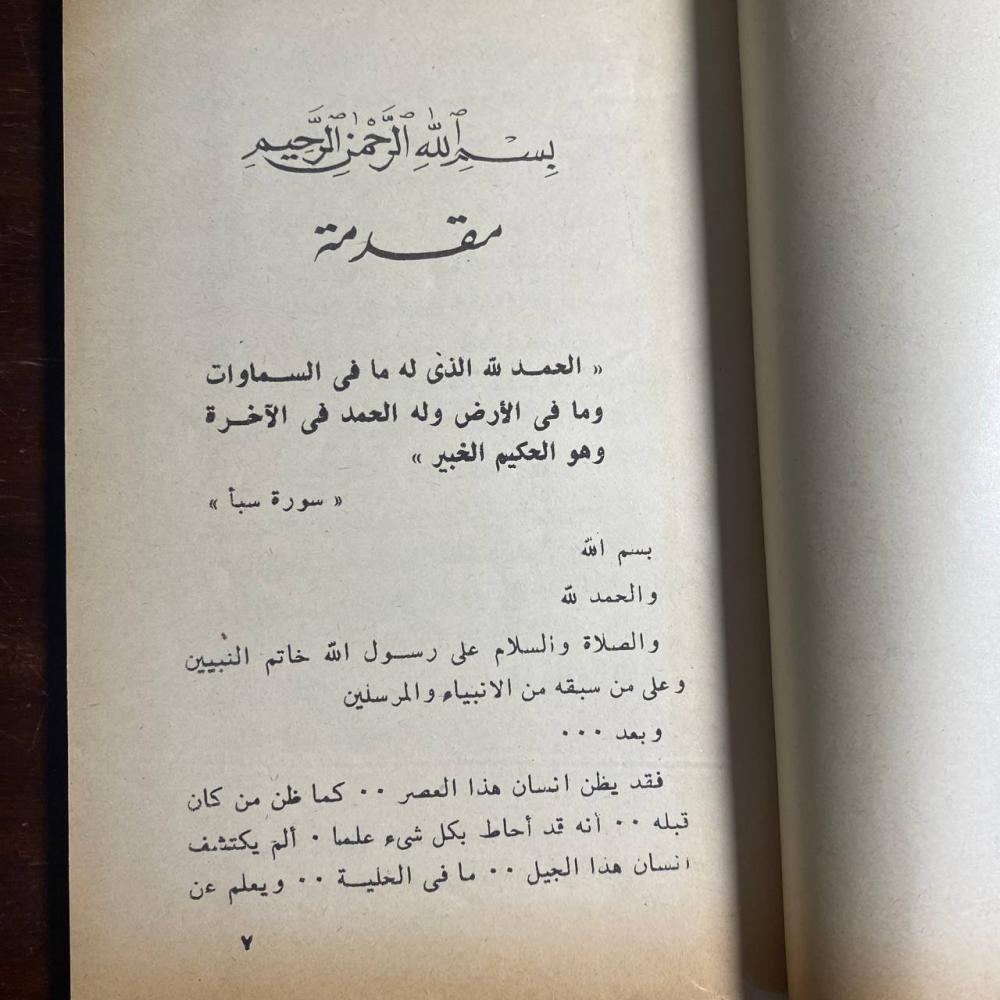 بِسْمِ اللَّهِ الرَّحْمٰنِ الرَّحِيمِ
مقدمة
« الحمـد لله الذى له ما فى السـماوات
وما فى الأرض وله الحمد فى الآخـرة
وهو الحكيم الخبير »
« سورة سبأ »
بسم الله
والحمد لله
والصلاة والسلام على رسـول الله خاتم النبيين
وعلى من سبقه من الانبياء والمرسلين
وبعد ...
فقد يظن انسان هذا العصر .. كما ظن من كان
قبله .. أنه قد أحاط بكل شىء علما . ألم يكتشف
انسان هذا الجيل .. ما فى الخليـة .. ويعلم عن
٧